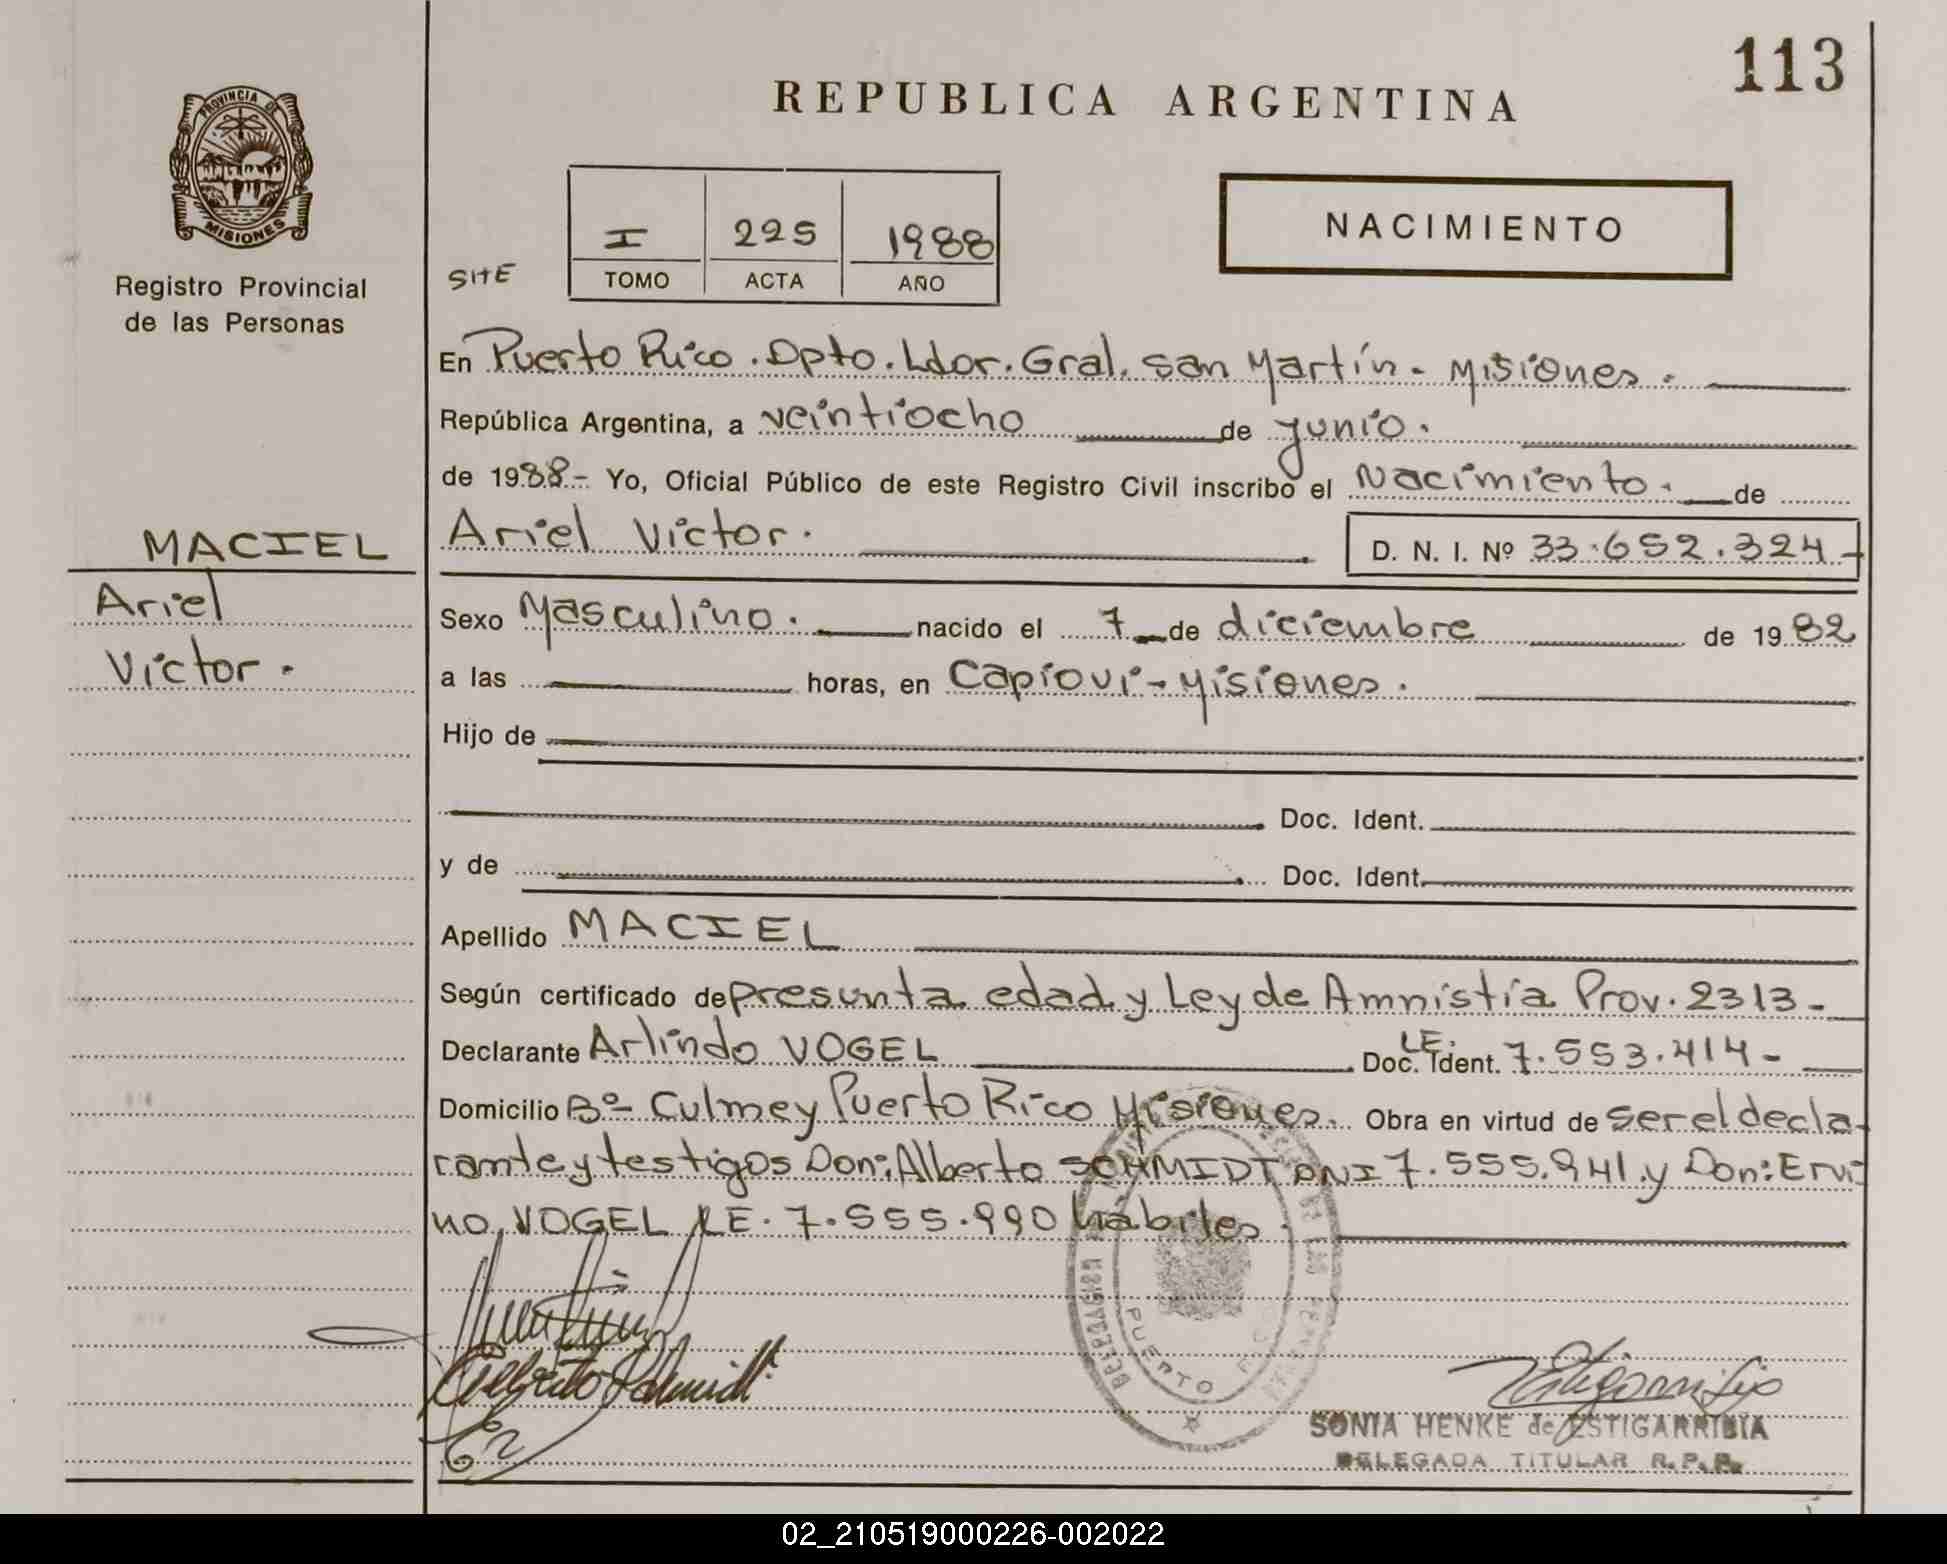 113
REPUBLICA ARGENTINA
PROVINCIA DE
MISIONES
Registro Provincial
de las Personas
NACIMIENTO
I 225 1988
TOMO ACTA AÑO
SITE
En Puerto Rico. Dpto. Ldor. Gral. San Martín - Misiones.
República Argentina, a veintiocho de junio.
de 1988.- Yo, Oficial Público de este Registro Civil inscribo el Nacimiento. de
Ariel Victor. D. N. I. Nº 33.652.324-
MACIEL
Ariel
Victor.
Sexo Masculino. nacido el 7 de diciembre de 1982
a las horas, en Capioví - Misiones.
Hijo de
Doc. Ident.
y de Doc. Ident.
Apellido MACIEL
Según certificado de presunta edad y Ley de Amnistía Prov. 2313-
Declarante Arlindo VOGEL Doc. Ident. LE. 7.553.414-
Domicilio Bº- Culmey Puerto Rico Misiones. Obra en virtud de ser el decla-
rante y testigos Don: Alberto SCHMIDT DNI 7.555.941. y Don: Ervi-
no VOGEL LE. 7.555.990 hábiles.
Alberto Schmidt
PUERTO RICO
SONIA HENKE de ESTIGARRIBIA
DELEGADA TITULAR R.P.P.
02_210519000226-002022